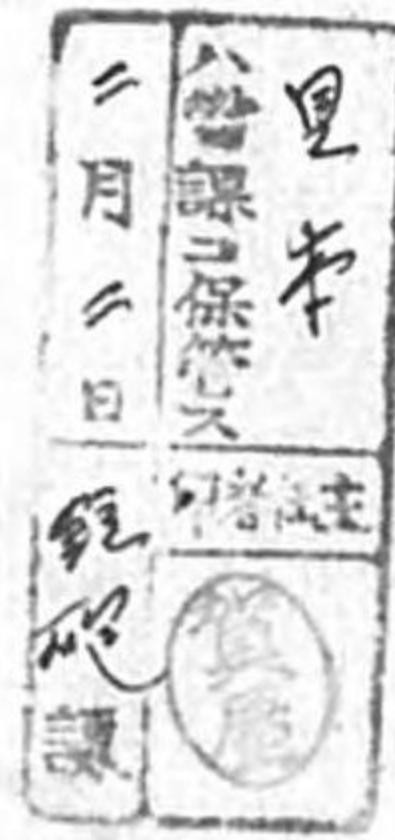 見本
ハ當課ニ保管セス
主任者印
二月二日
銃砲課